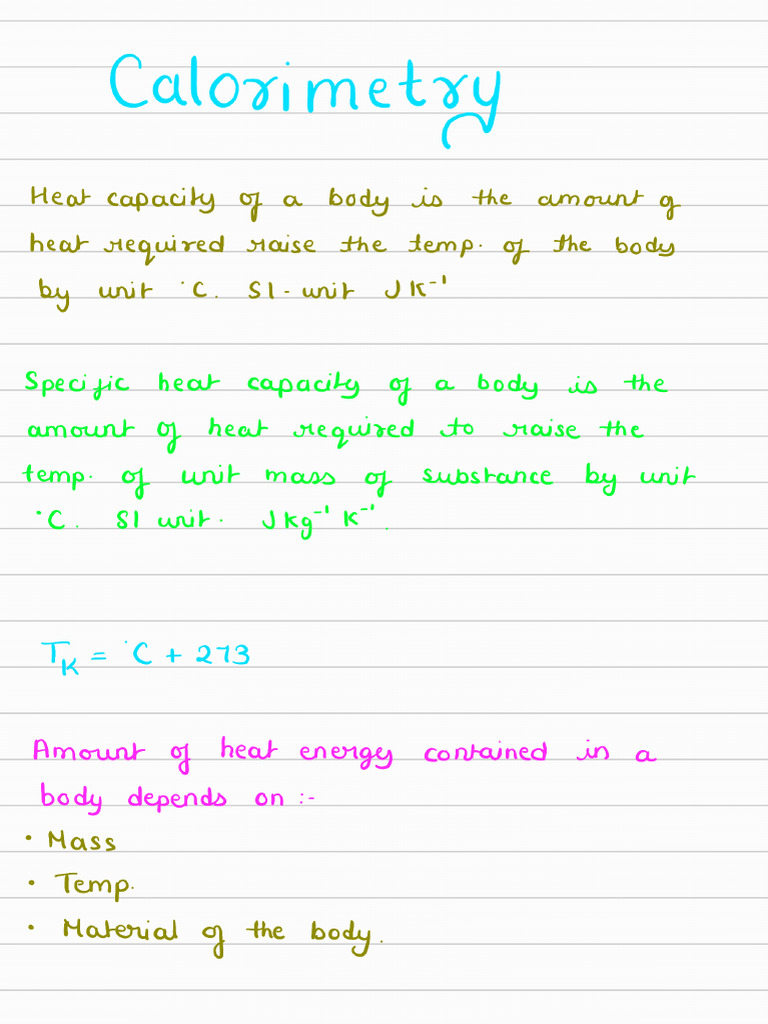 Calorimetry
Heat capacity of a body is the amount of
heat required raise the temp. of the body
by unit °C. SI-unit JK⁻¹
Specific heat capacity of a body is the
amount of heat required to raise the
temp. of unit mass of substance by unit
°C. SI unit. Jkg⁻¹K⁻¹.
T_K = °C + 273
Amount of heat energy contained in a
body depends on :-
• Mass
• Temp.
• Material of the body.